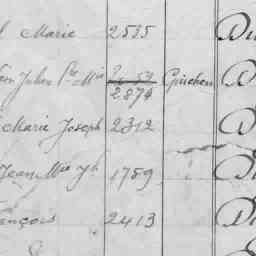 Marie 2535 Du
Julien Pre Mie Guichen D
2874
Marie Joseph 2312 D
Jean Mie Jh 1789 D
ançois 2413 D